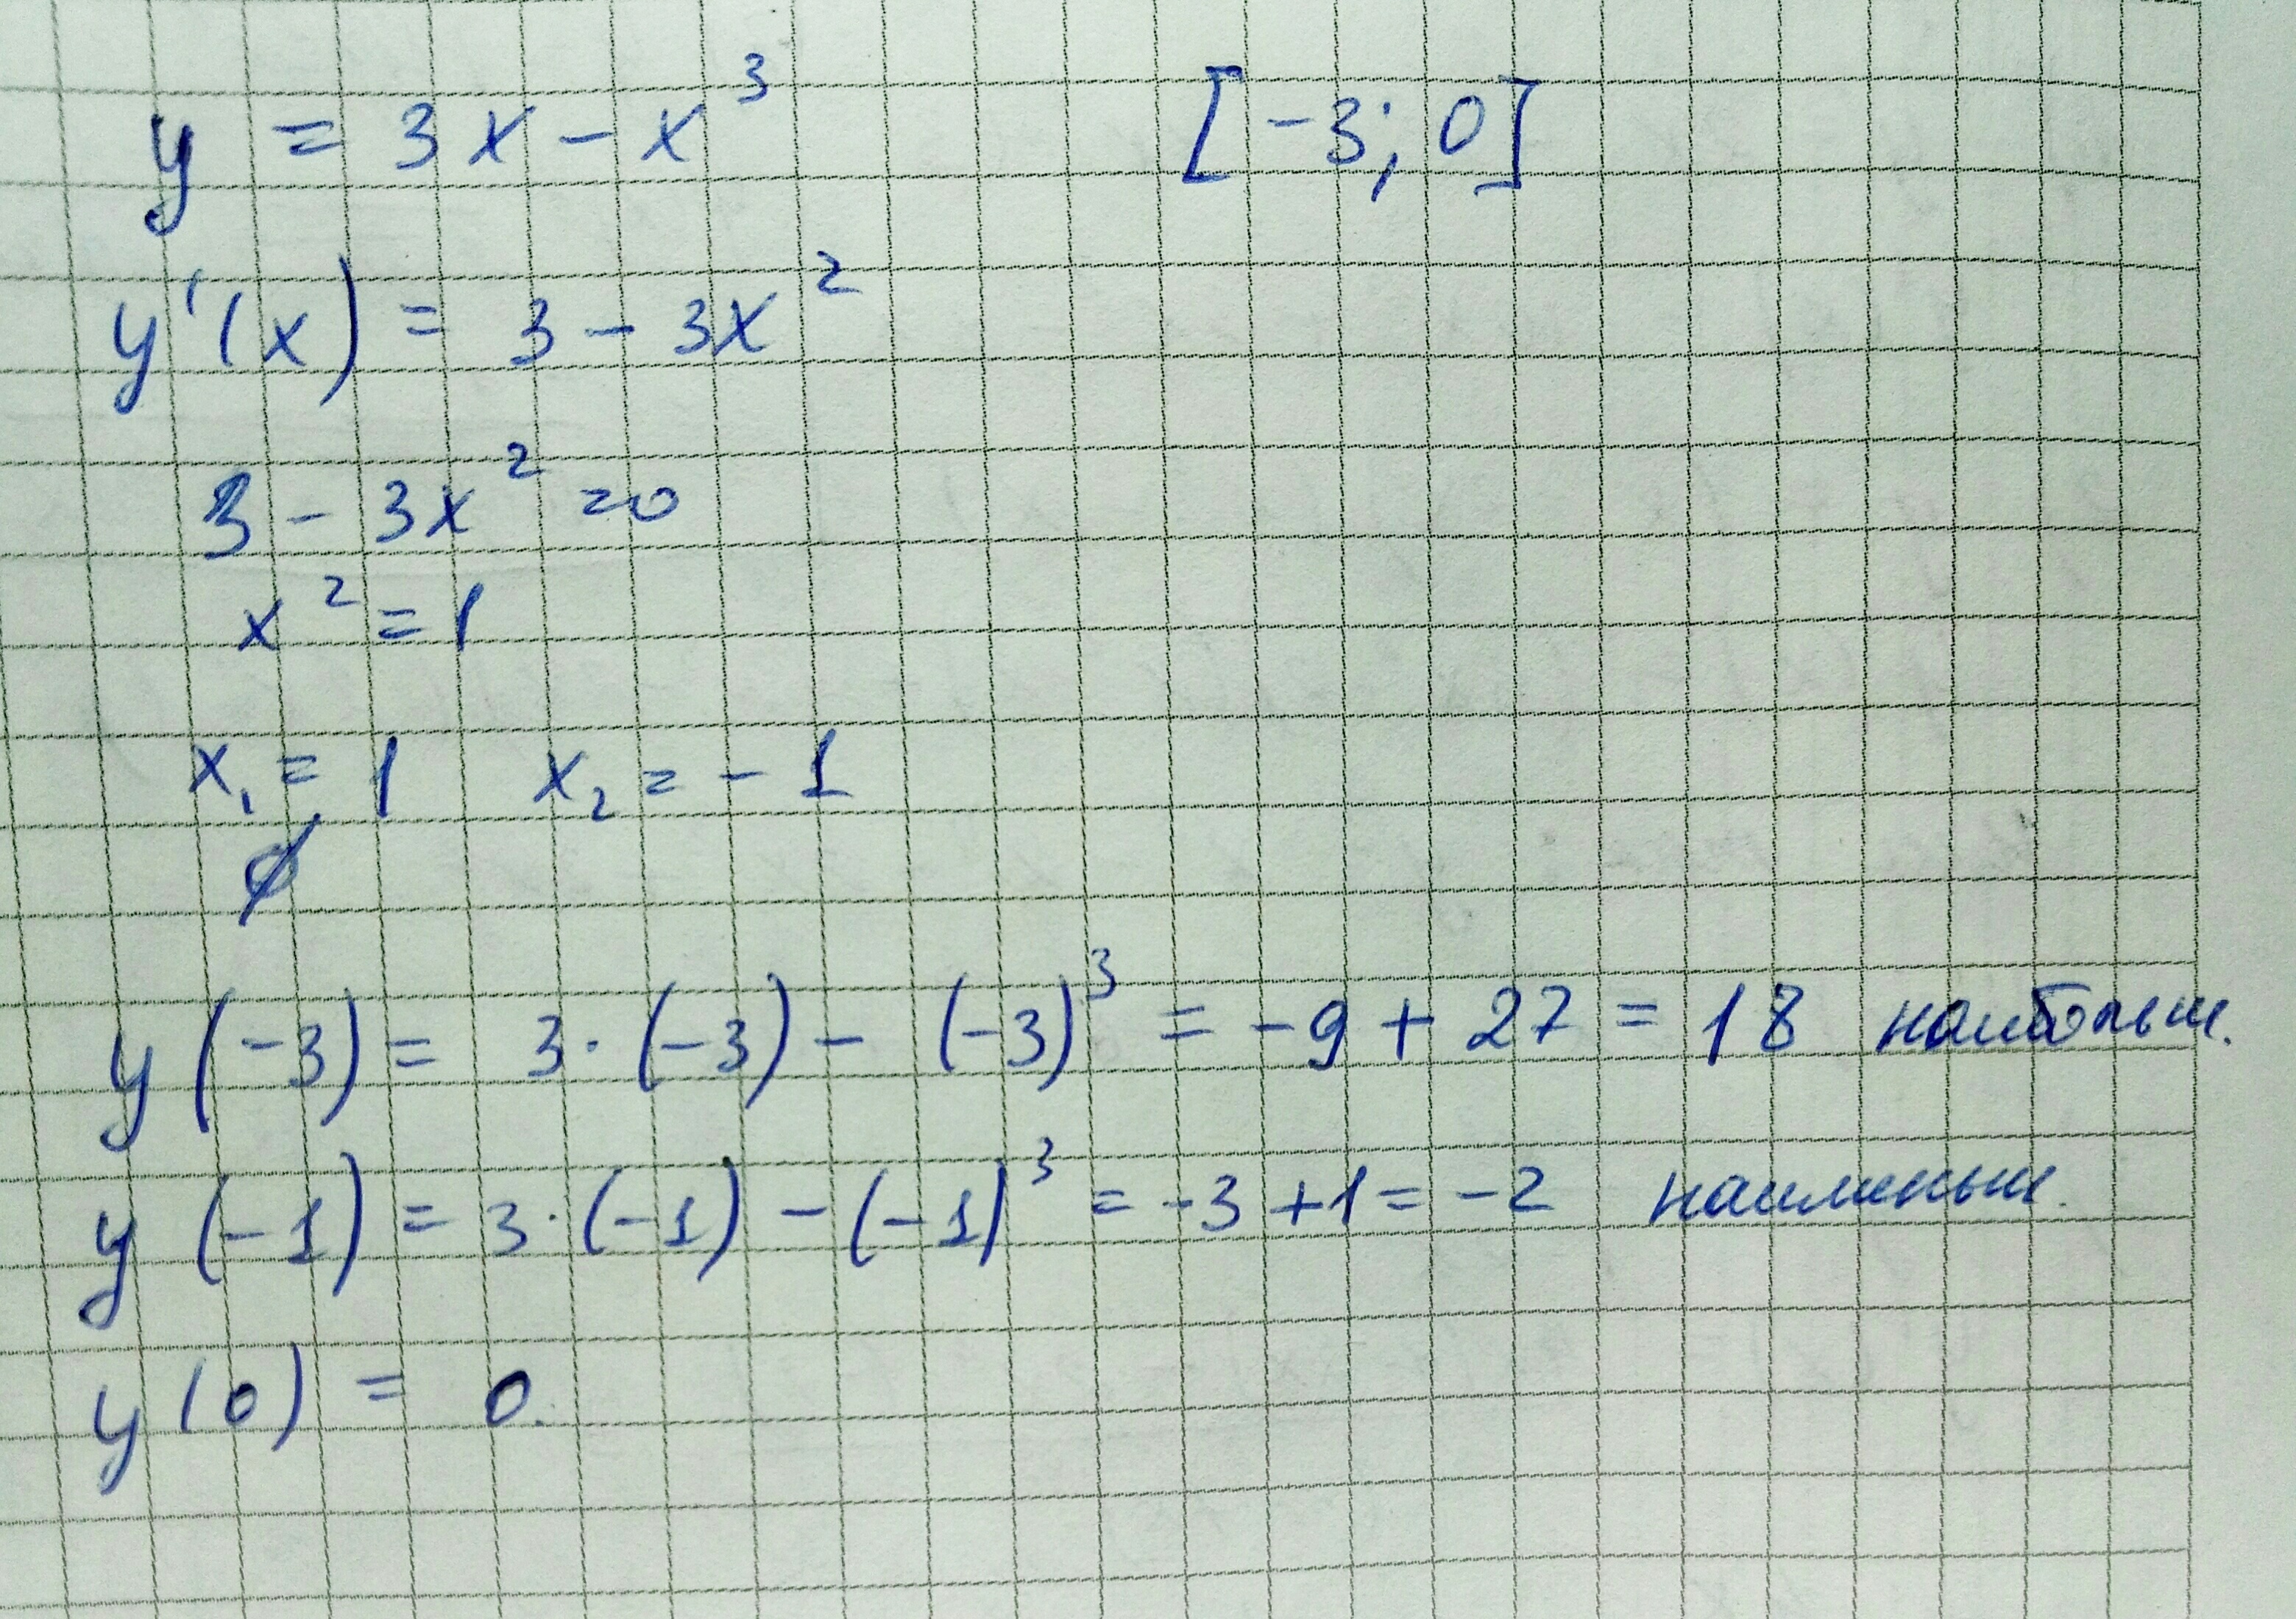 y = 3x - x³ [-3; 0]
y'(x) = 3 - 3x²
3 - 3x² = 0
x² = 1
x₁ = 1 x₂ = -1
∅
y(-3) = 3·(-3) - (-3)³ = -9 + 27 = 18 наибольш.
y(-1) = 3·(-1) - (-1)³ = -3 + 1 = -2 наименьш.
y(0) = 0.